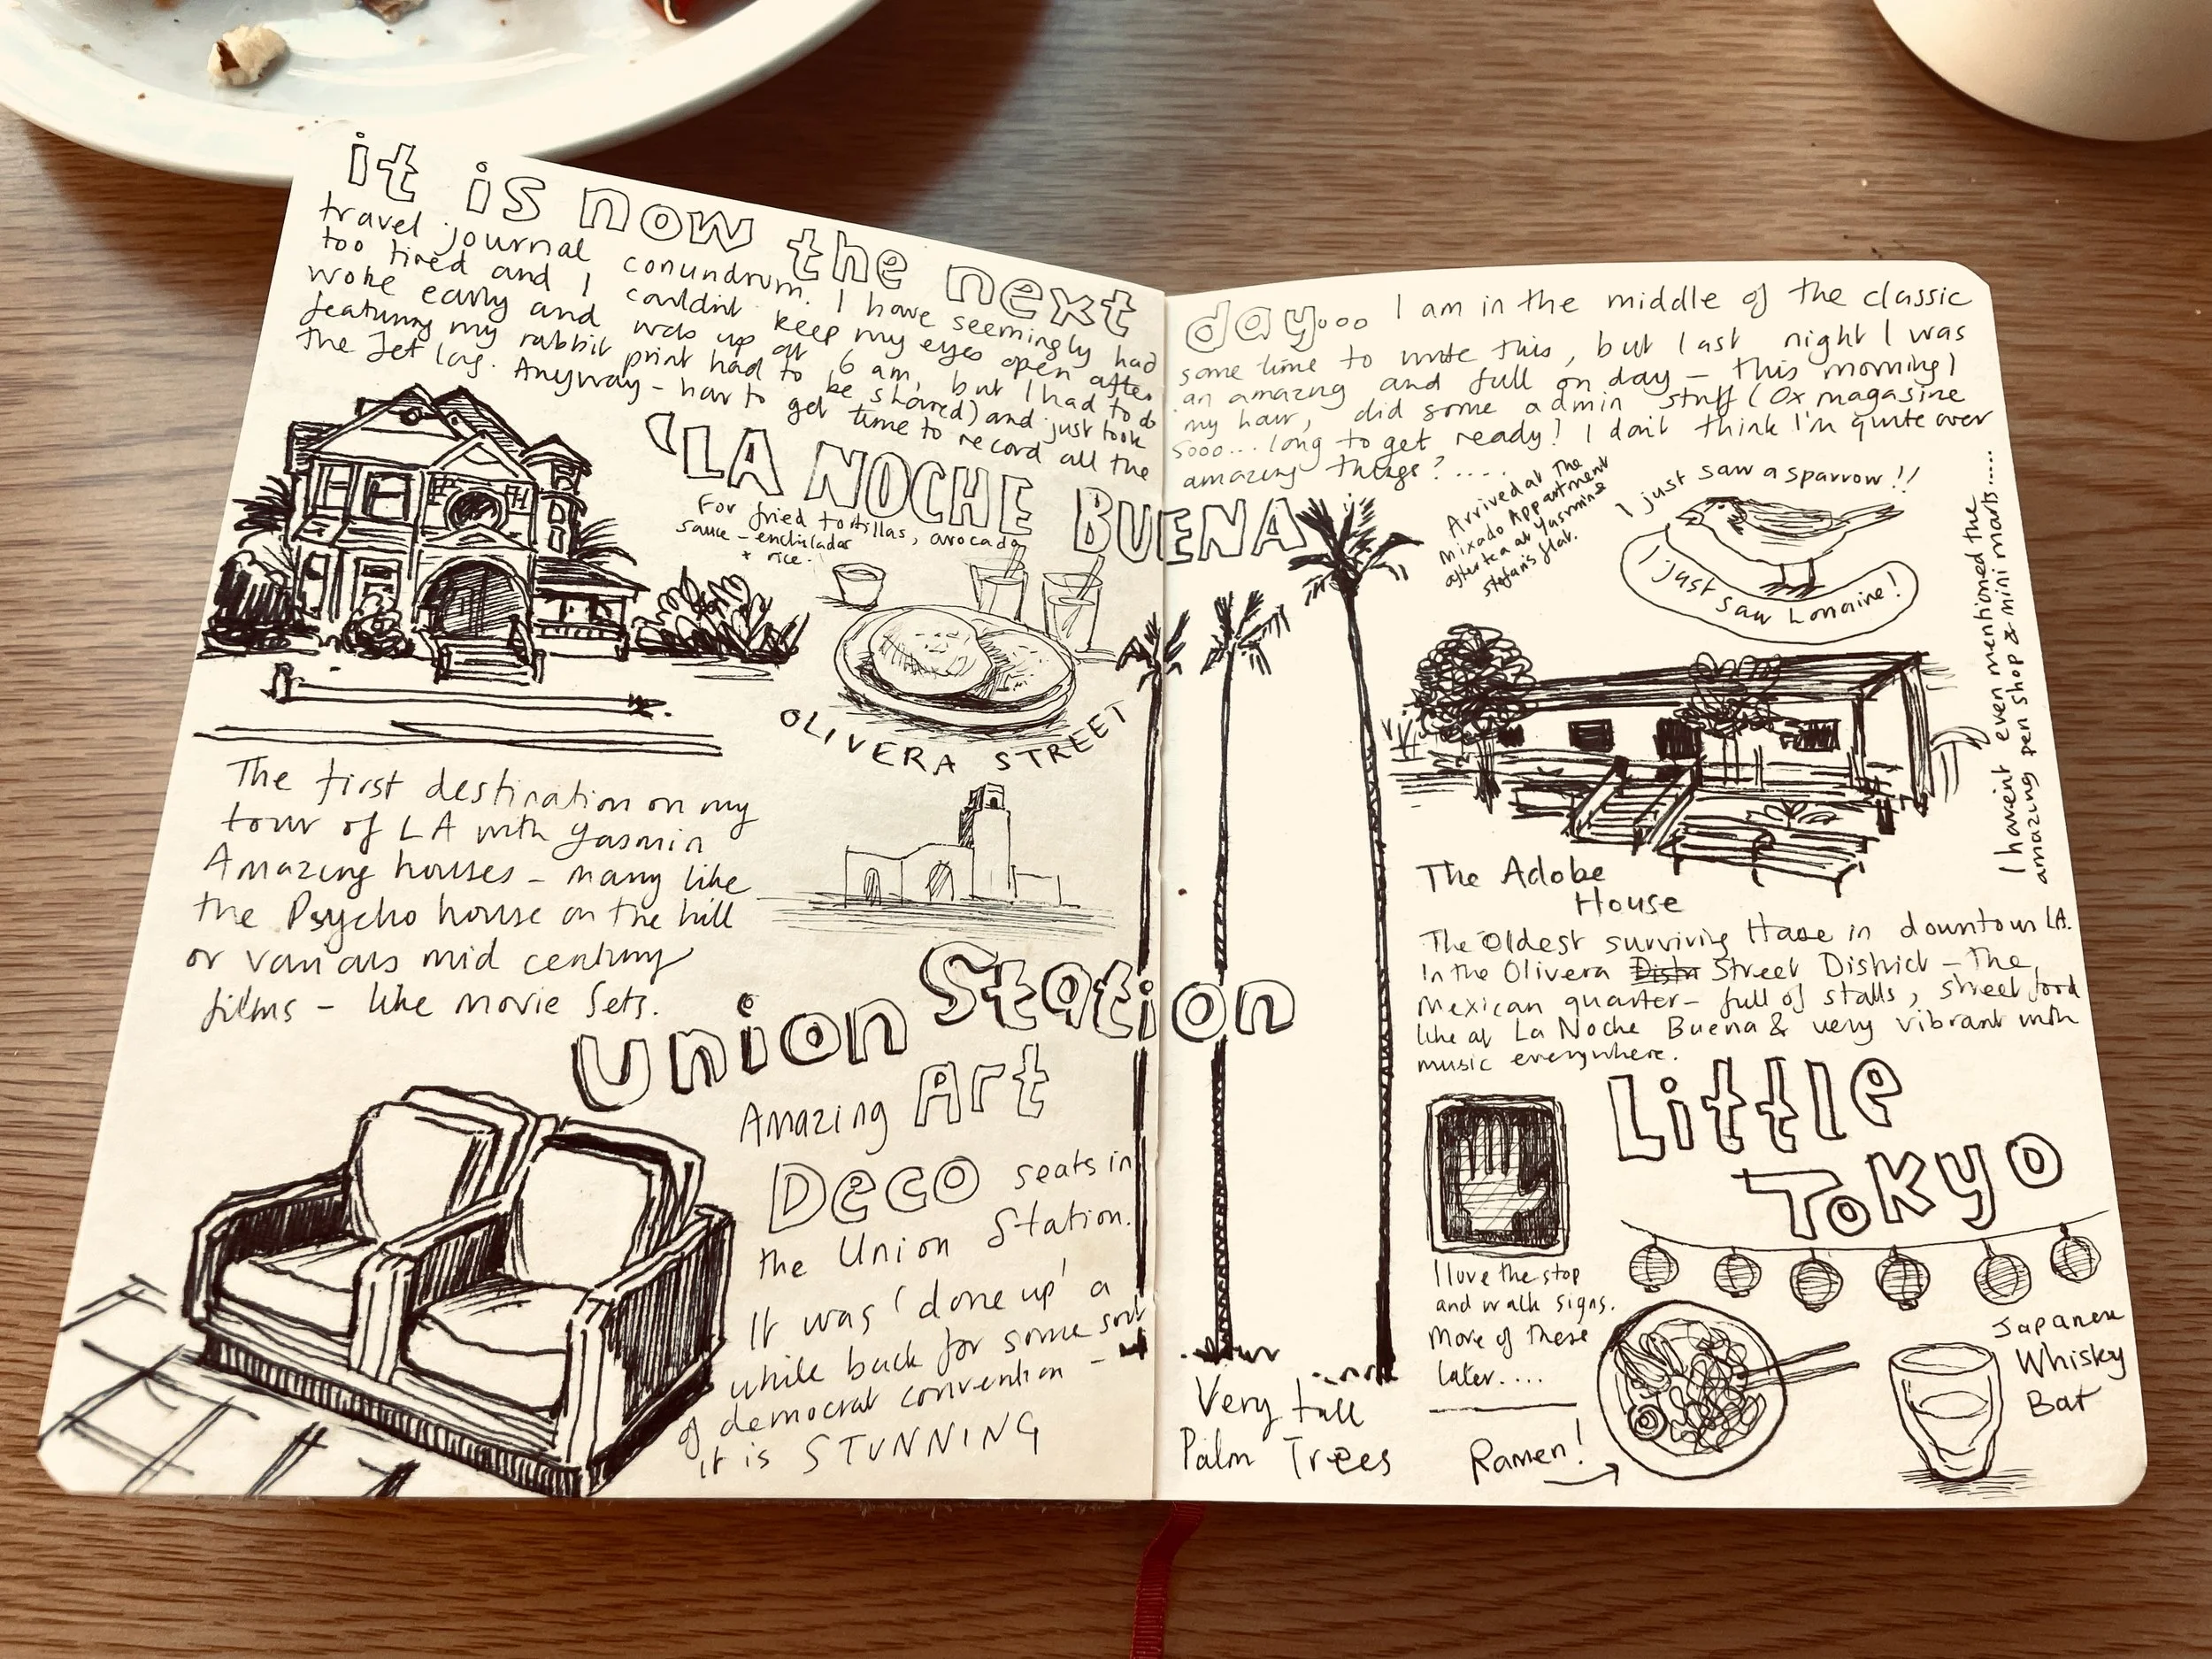 it is now the next day... I am in the middle of the classic
travel journal conundrum. I have seemingly had some time to write this, but last night I was
too tired and I couldn't keep my eyes open after an amazing and full on day – this morning I
woke early and was up at 6 am, but I had to do my hair, did some admin stuff (Ox magasine
featuring my rabbit print had to be shared) and just took sooo... long to get ready! I don't think I'm quite over
the Jet lag. Anyway – how to get time to record all the amazing things?....
'LA NOCHE BUENA
For fried tortillas, avocado
sauce – enchiladas
+ rice.
OLIVERA STREET
The first destination on my
tour of LA with Yasmin
Amazing houses – many like
the Psycho house on the hill
or various mid century
films – like movie sets.
Union Station
Amazing Art
Deco seats in
the Union Station.
It was 'done up' a
while back for some sort
of democrat convention –
it is STUNNING
Very tall
Palm Trees
Arrived at The
Mixado Appartment
after tea at Yasmine
Stefan's flat.
I just saw a sparrow!!
I just saw Lorraine!
I haven't even mentioned the
amazing pen shop & mini marts.....
The Adobe
House
The Oldest surviving House in downtown LA.
In the Olivera Distr Street District – The
Mexican quarter – full of stalls, street food
like at La Noche Buena & very vibrant with
music everywhere.
Little
Tokyo
I love the stop
and walk signs.
More of these
later....
Ramen!
Japanese
Whisky
Bat